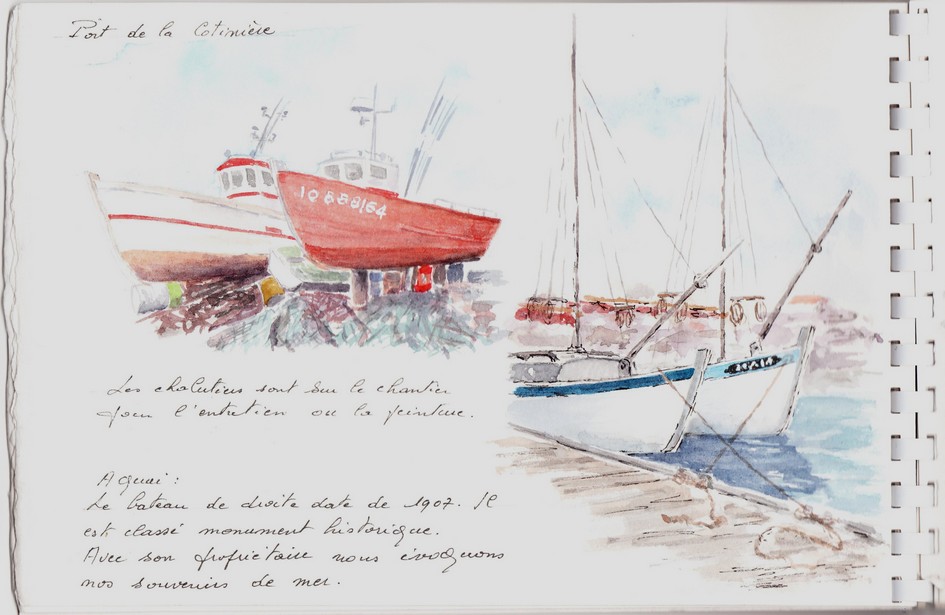 Port de la Cotinière
IO 888164
Les chalutiers sont sur le chantier
pour l'entretien ou la peinture.
A quai :
Le bateau de droite date de 1907. Il
est classé monument historique.
Avec son propriétaire nous évoquons
nos souvenirs de mer.